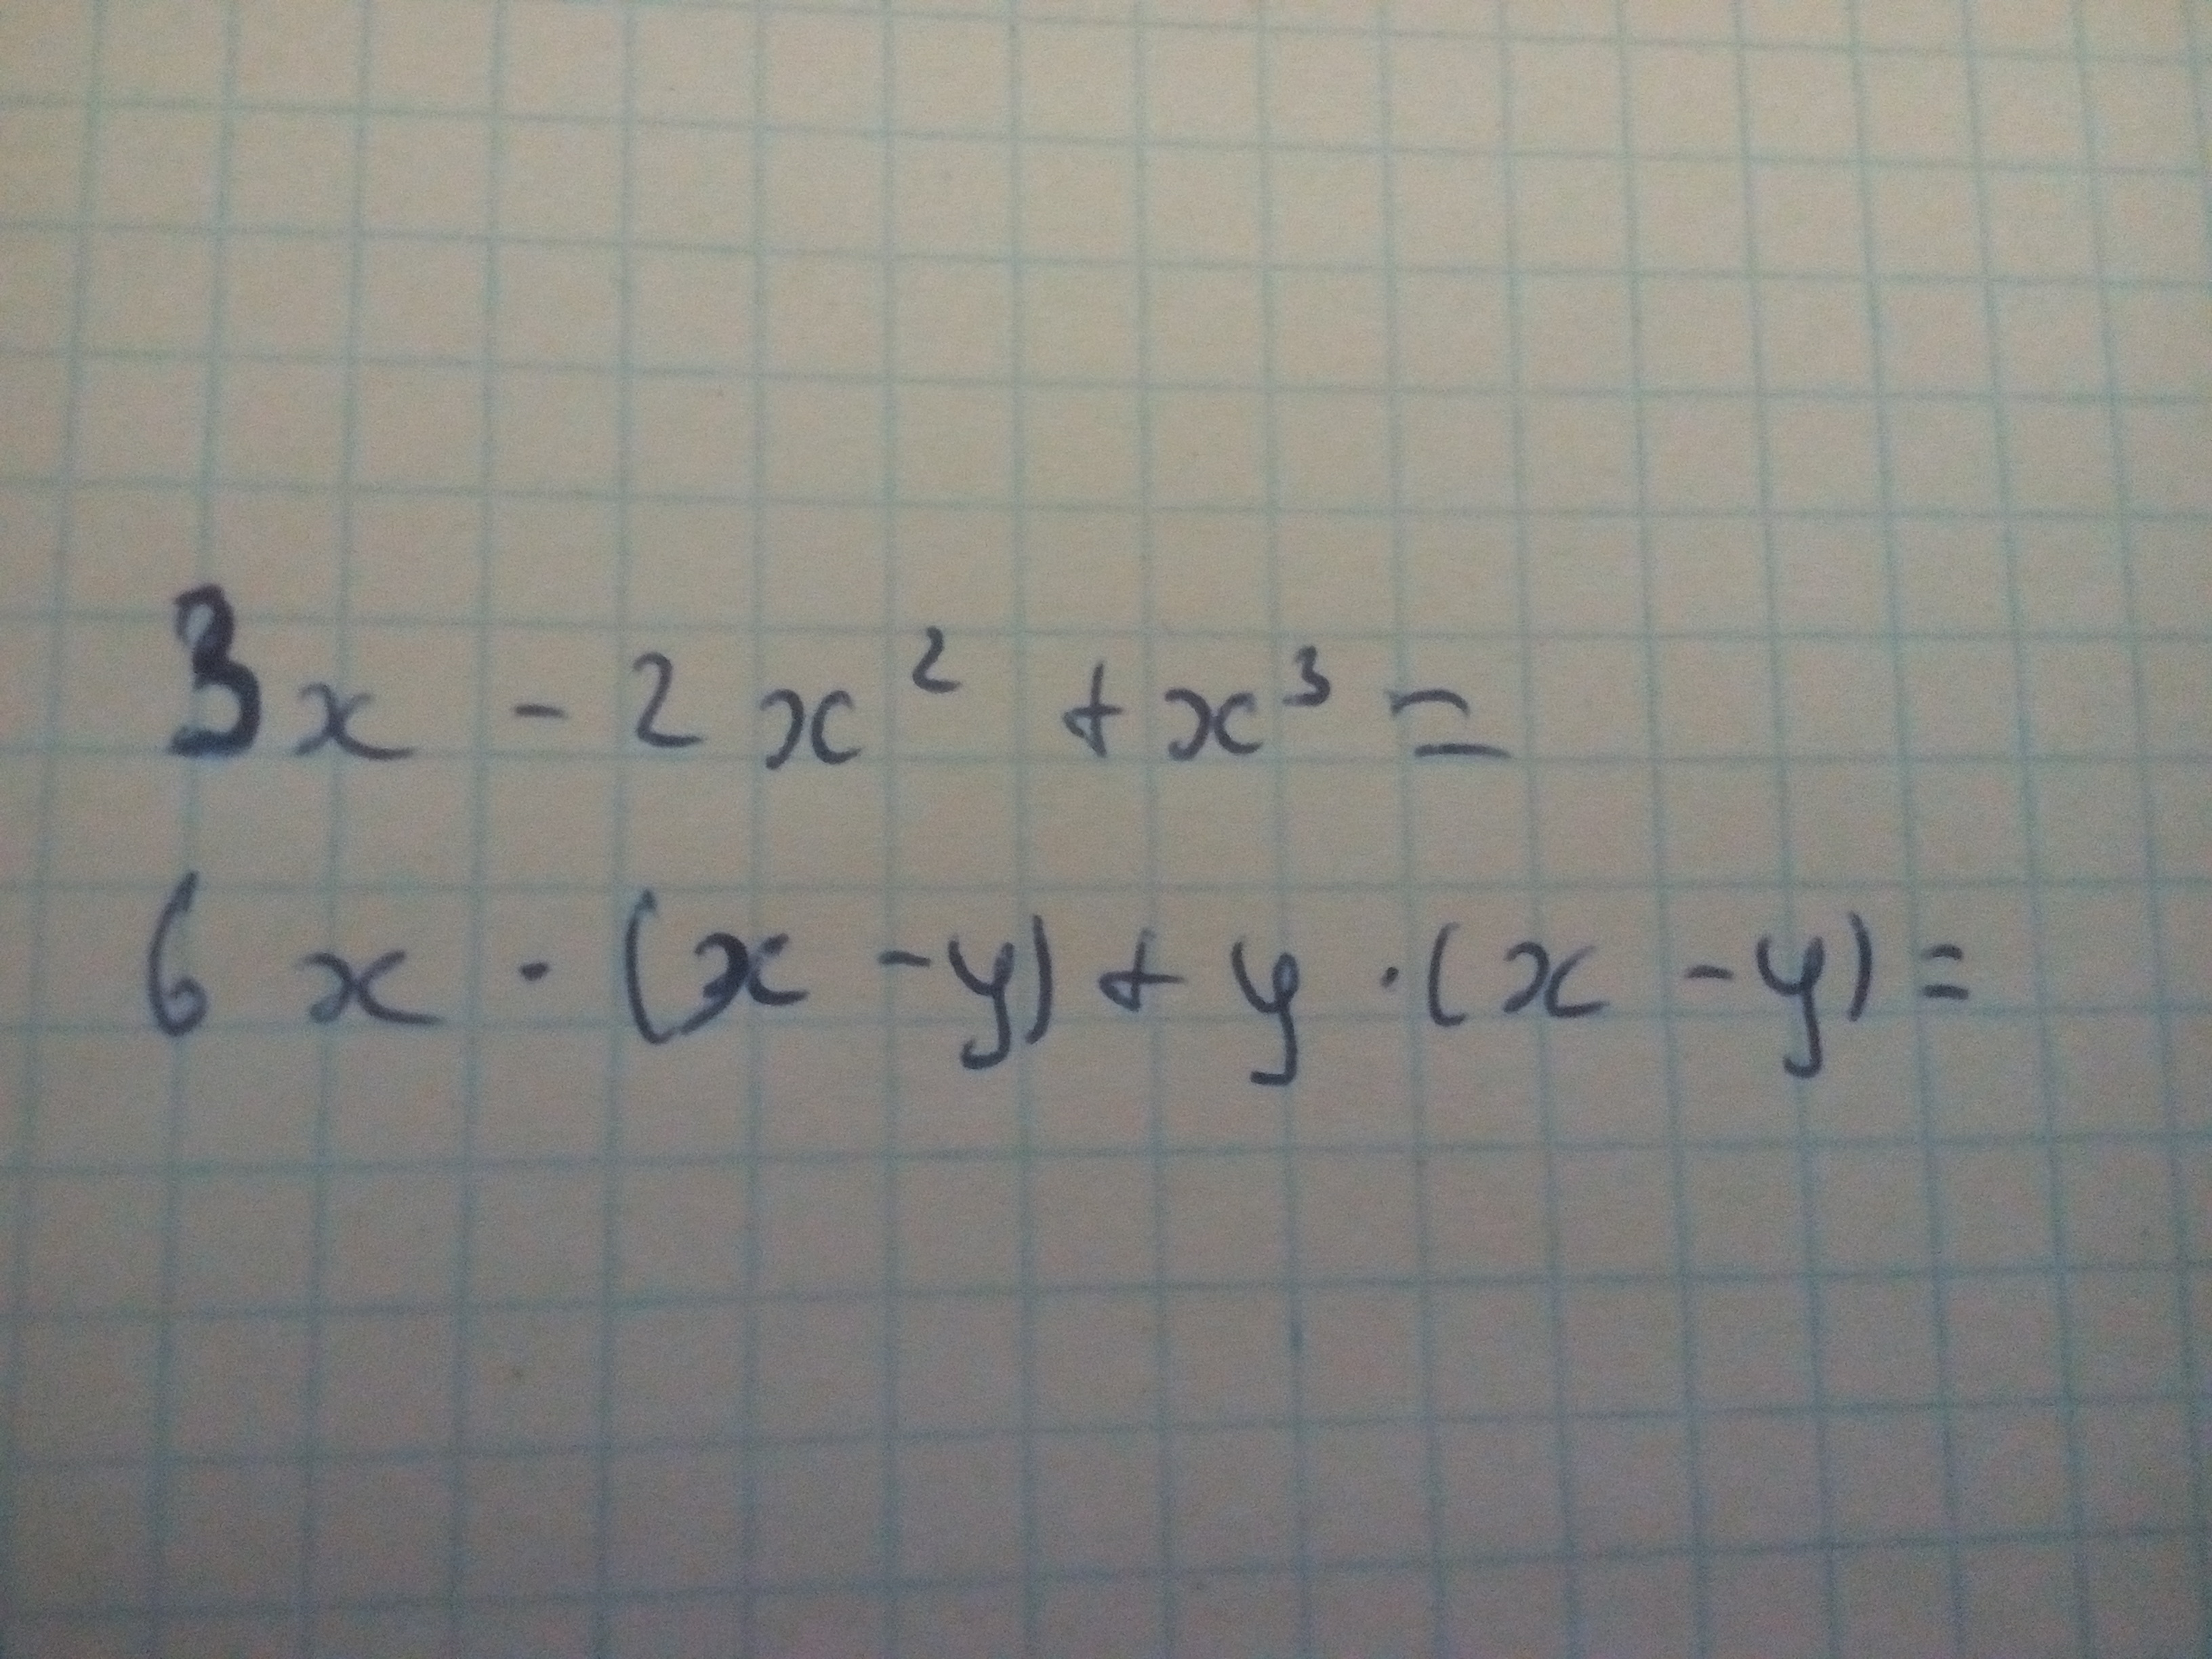 3x - 2x² + x³ =
6x · (x - y) + y · (x - y) =